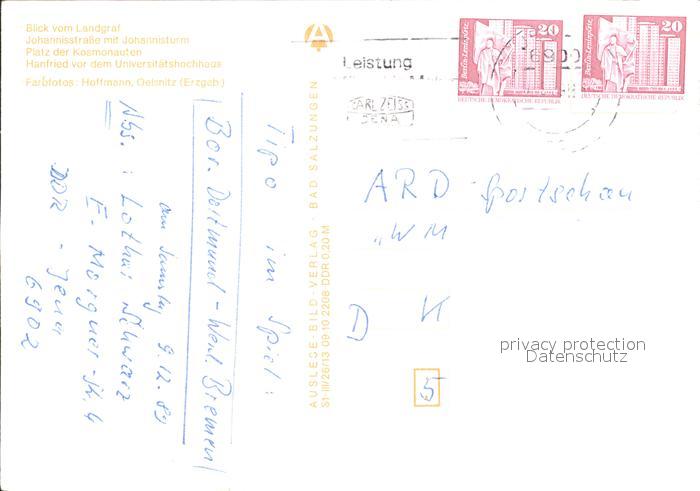 Blick vom Landgraf
Johannisstraße mit Johannisturm
Platz der Kosmonauten
Hanfried vor dem Universitätshochhaus
Farbfotos: Hoffmann, Oelsnitz (Erzgeb.)
AUSLESE-BILD-VERLAG · BAD SALZUNGEN
S1-III/26/13 09 10 2208 DDR 0,20 M
Leistung
CARL ZEISS
JENA
6900
20
Berlin-Leninplatz
DEUTSCHE DEMOKRATISCHE REPUBLIK
20
Berlin-Leninplatz
DEUTSCHE DEMOKRATISCHE REPUBLIK
Tipo im Spiel:
Bor. Dortmund - Werd. Bremen
am Samstag 9.12.89
Abs.: Lothar Schwarz
DDR - Jena
6902
ARD - Sportschau
"WM
5
privacy protection
Datenschutz